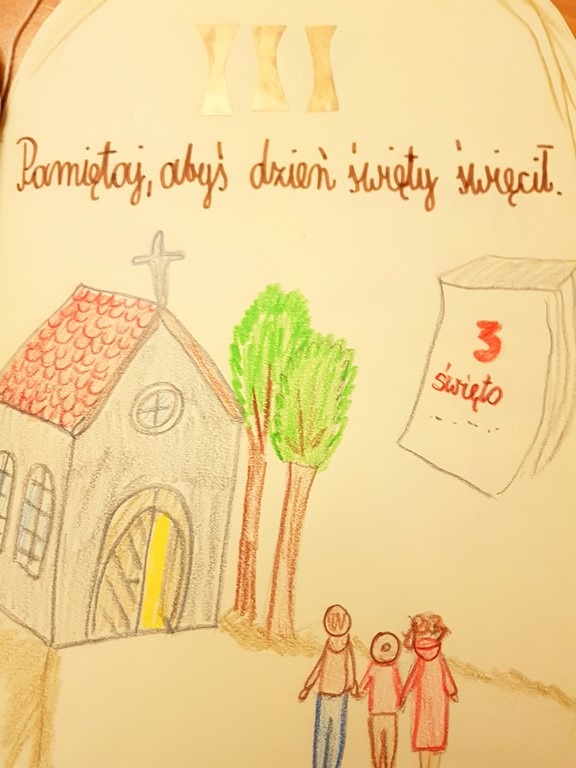 III
Pamiętaj, abyś dzień święty święcił.
3
święto